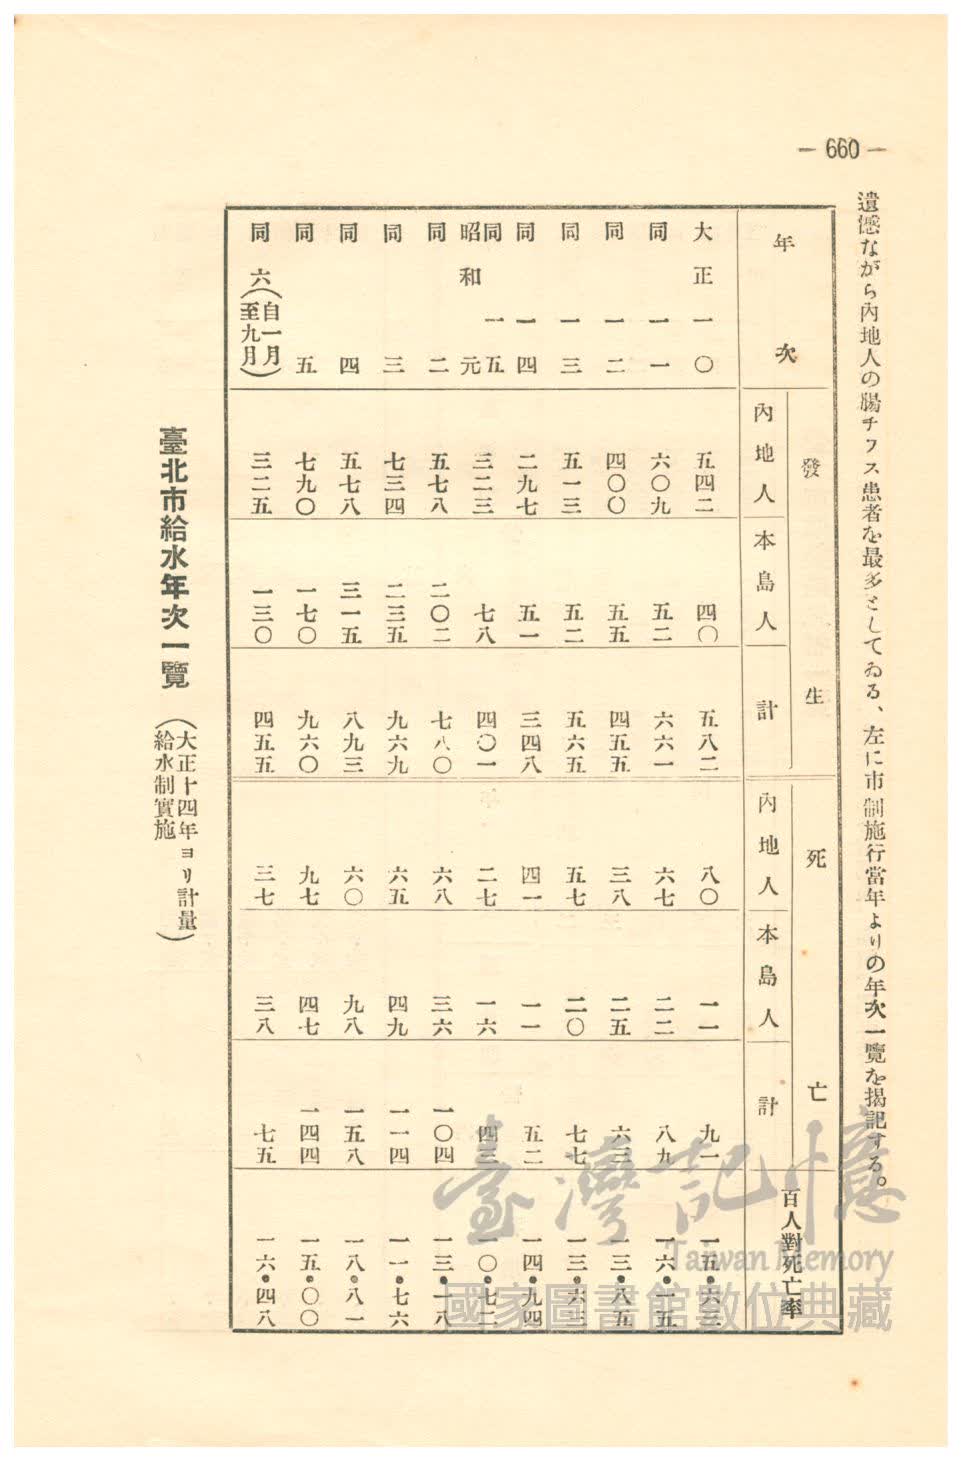 — 660 —
遺憾ながら內地人の腸チフス患者を最多としてゐる、左に市制施行當年よりの年次一覽を揭記する。
年次
發生
內地人
本島人
計
死亡
內地人
本島人
計
百人對死亡率
大正一〇 五四二 四〇 五八二 八〇 一一 九一 一五•六三
同一一 六〇九 五二 六六一 六七 二二 八九 一六•一五
同一二 四〇〇 五五 四五五 三八 二五 六三 一三•八五
同一三 五一三 五二 五六五 五七 二〇 七七 一三•六二
同一四 二九七 五一 三四八 四一 一一 五二 一四•九四
同一五
昭和元 三二三 七八 四〇一 二七 一六 四三 一〇•七二
同二 五七八 二〇二 七八〇 六八 三六 一〇四 一三•一八
同三 七三四 二三五 九六九 六五 四九 一一四 一一•七六
同四 五七八 三一五 八九三 六〇 九八 一五八 一八•八一
同五 七九〇 一七〇 九六〇 九七 四七 一四四 一五•〇〇
同六(自一月至九月) 三二五 一三〇 四五五 三七 三八 七五 一六•四八
臺北市給水年次一覽(大正十四年ヨリ計量給水制實施)
臺灣記憶
Taiwan Memory
國家圖書館數位典藏